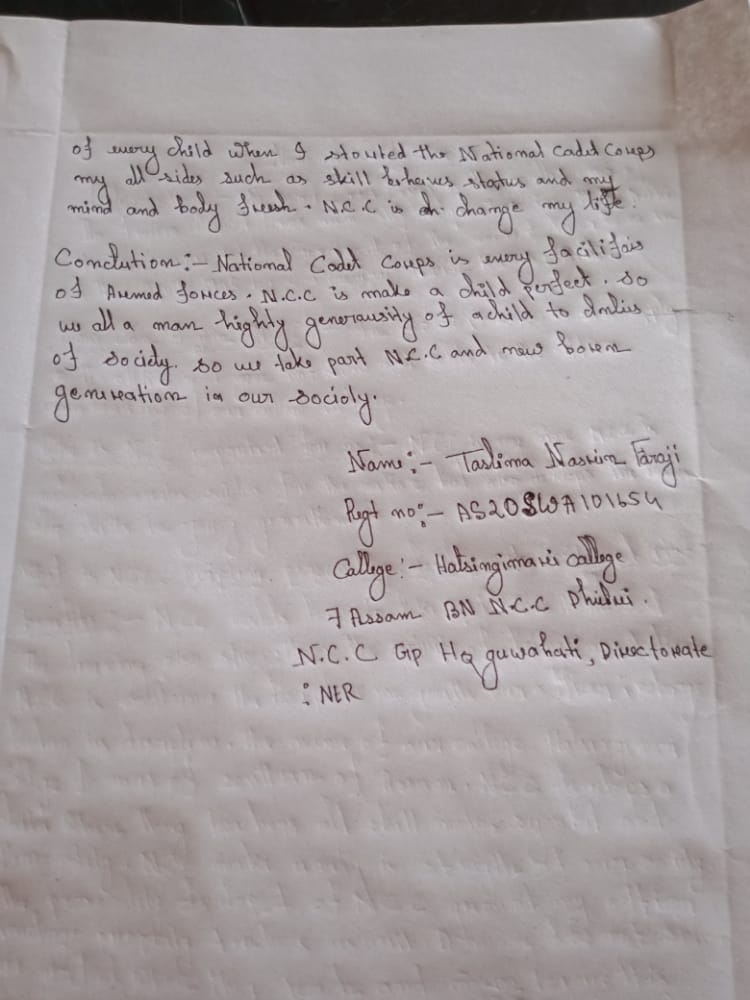 of every child when I stouted the National Cadet Coups
my all sides such as skill behaves status and my
mind and body fresh. N.C.C is ch. change my life.
Conclution:- National Cadet Coups is every facilifais
of Aremed forces. N.C.C is make a child perfect. so
we all a man highty generausity of a child to
of sociely. so we take part N.C.C and new boren
genereation in our socioly.
Name:- Taslima Nasrin Faraji
Regt no:- AS20SWA101654
Callege:- Hatsingimari callege
7 Assam BN N.C.C Dhubri.
N.C.C Gp HQ guwahati, Directorate
: NER